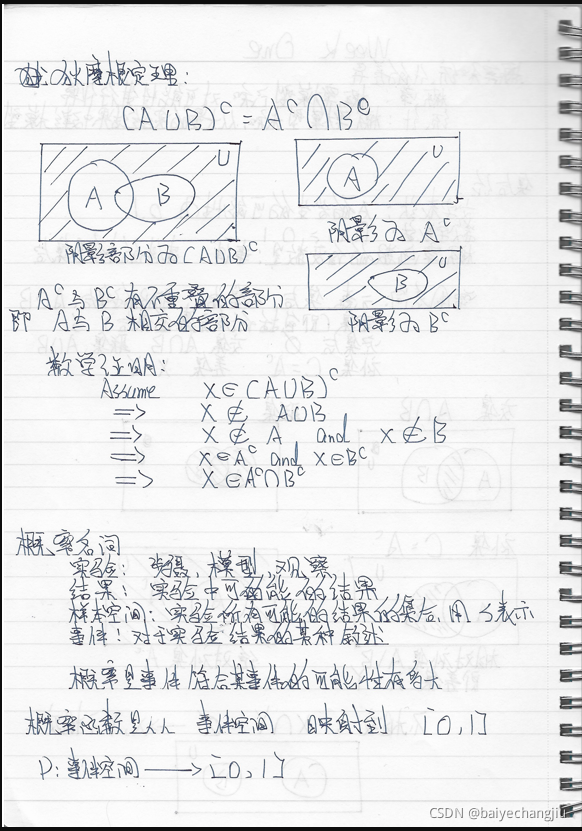 狄摩根定理:
(A∪B)ᶜ = Aᶜ∩Bᶜ
U
A
B
阴影部分为(A∪B)ᶜ
U
A
阴影为 Aᶜ
U
B
阴影为 Bᶜ
Aᶜ与Bᶜ 有不重叠的部分
即 A与B 相交的部分
数学证明:
Assume x∈(A∪B)ᶜ
=> x∉ A∪B
=> x∉ A and x∉B
=> x∈Aᶜ and x∈Bᶜ
=> x∈Aᶜ∩Bᶜ
概率名词
实验: 模型, 观察
结果: 实验中可能的结果
样本空间: 实验所有可能的结果的集合, 用 S表示
事件: 对于实验结果的某种叙述
概率是事件 符合某事件的可能性有多大
概率函数是从 事件空间 映射到 [0,1]
P: 事件空间 ⟶ [0,1]
CSDN @baiyechangjiu